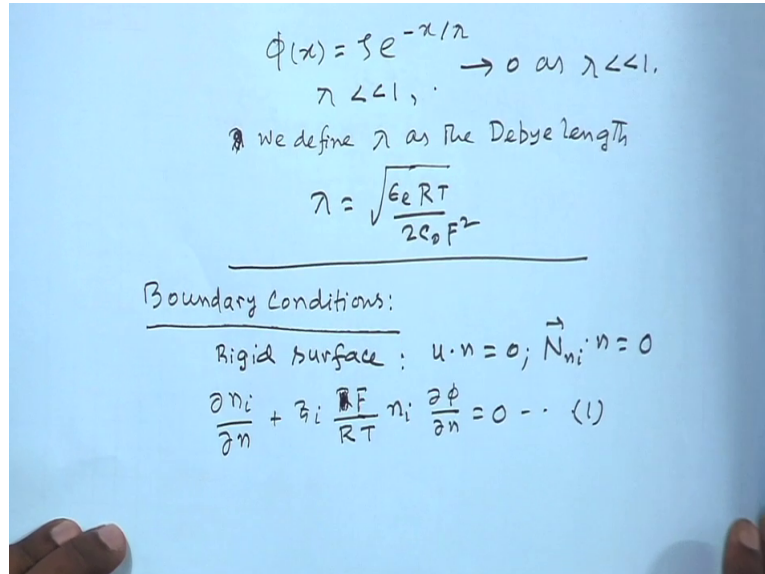 ϕ(x) = ζe^{-x/λ} → 0 as λ<<1.
λ <<1, .
We define λ as the Debye length
λ = √(ϵₑRT / 2C₀F²)
Boundary Conditions:
Rigid surface : u·n = 0; N⃗_{ni}·n = 0
∂nᵢ/∂n + zᵢ F/RT nᵢ ∂ϕ/∂n = 0 -·· (1)